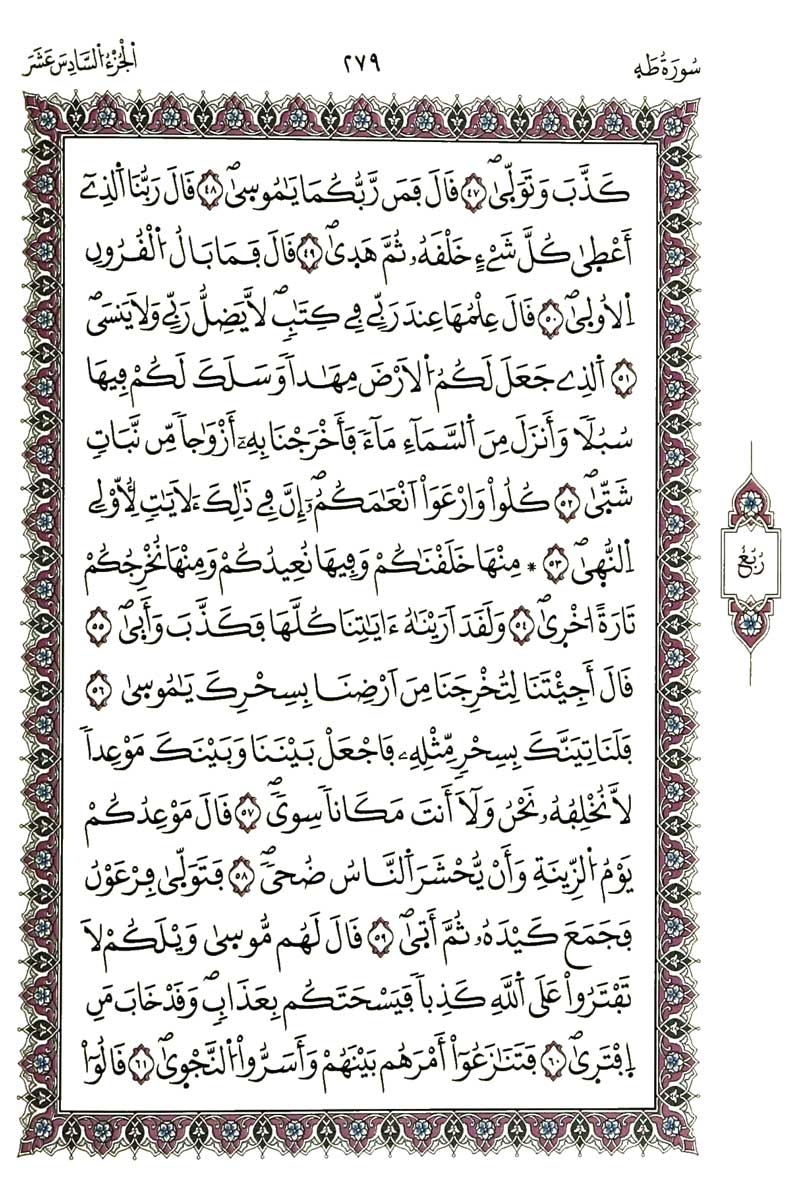 سُورَةُ طَهِ ٢٧٩ اَلْجُزْءُ السَّادِسَ عَشَرَ
كَذَّبَ وَتَوَلّ۪ىٰۖ ٤٧ قَالَ فَمَن رَّبُّكُمَا يَٰمُوس۪ىٰۖ ٤٨ قَالَ رَبُّنَا اَ۬لذِےٓ
أَعْط۪ىٰ كُلَّ شَےْءٍ خَلْقَهُۥ ثُمَّ هَد۪ىٰۖ ٤٩ قَالَ فَمَا بَالُ اُ۬لْقُرُونِ
اِ۬لُاول۪ىٰۖ ٥٠ قَالَ عِلْمُهَا عِندَ رَبِّے فِے كِتَٰبٖۖ لَّا يَضِلُّ رَبِّے وَلَا يَنسَىۖ
٥١ اَ۬لذِے جَعَلَ لَكُمُ اُ۬لَارْضَ مِهَٰداٗ وَسَلَكَ لَكُمْ فِيهَا
سُبُلاٗ وَأَنزَلَ مِنَ اَ۬لسَّمَآءِ مَآءٗ فَأَخْرَجْنَا بِهِۦٓ أَزْوَٰجاٗ مِّن نَّبَاتٖ
شَتّ۪ىٰۖ ٥٢ كُلُواْ وَارْعَوَاْ اَنْعَٰمَكُمُۥٓۖ إِنَّ فِے ذَٰلِكَ ءَلَايَٰتٖ لِّأُوْلِے
اِ۬لنُّه۪ىٰۖ ٥٣ * مِنْهَا خَلَقْنَٰكُمْ وَفِيهَا نُعِيدُكُمْ وَمِنْهَا نُخْرِجُكُمْ
تَارَةً ا۟خْر۪ىٰۖ ٥٤ وَلَقَدَ اَرَيْنَٰهُ ءَايَٰتِنَا كُلَّهَا فَكَذَّبَ وَأَب۪ىٰۖ ٥٥
قَالَ أَجِئْتَنَا لِتُخْرِجَنَا مِنَ اَرْضِنَا بِسِحْرِكَ يَٰمُوس۪ىٰ ٥٦
فَلَنَاتِيَنَّكَ بِسِحْرٖ مِّثْلِهِۦ فَاجْعَلْ بَيْنَنَا وَبَيْنَكَ مَوْعِداٗ
لَّا نُخْلِفُهُۥ نَحْنُ وَلَآ أَنتَ مَكَاناٗ سِو۪ىٗۖ ٥٧ قَالَ مَوْعِدُكُمْ
يَوْمُ اُ۬لزِّينَةِ وَأَنْ يُّحْشَرَ اَ۬لنَّاسُ ضُحىٗۖ ٥٨ فَتَوَلّ۪ىٰ فِرْعَوْنُ
فَجَمَعَ كَيْدَهُۥ ثُمَّ أَت۪ىٰۖ ٥٩ قَالَ لَهُم مُّوس۪ىٰ وَيْلَكُمْ لَا
تَفْتَرُواْ عَلَى اَ۬للَّهِ كَذِباٗ فَيَسْحَتَكُم بِعَذَابٖۖ وَقَدْ خَابَ مَنِ
اِ۪فْتَر۪ىٰۖ ٦٠ فَتَنَٰزَعُوٓاْ أَمْرَهُم بَيْنَهُمْ وَأَسَرُّواْ اُ۬لنَّجْو۪ىٰۖ ٦١ قَالُوٓاْ
رُبُعُ